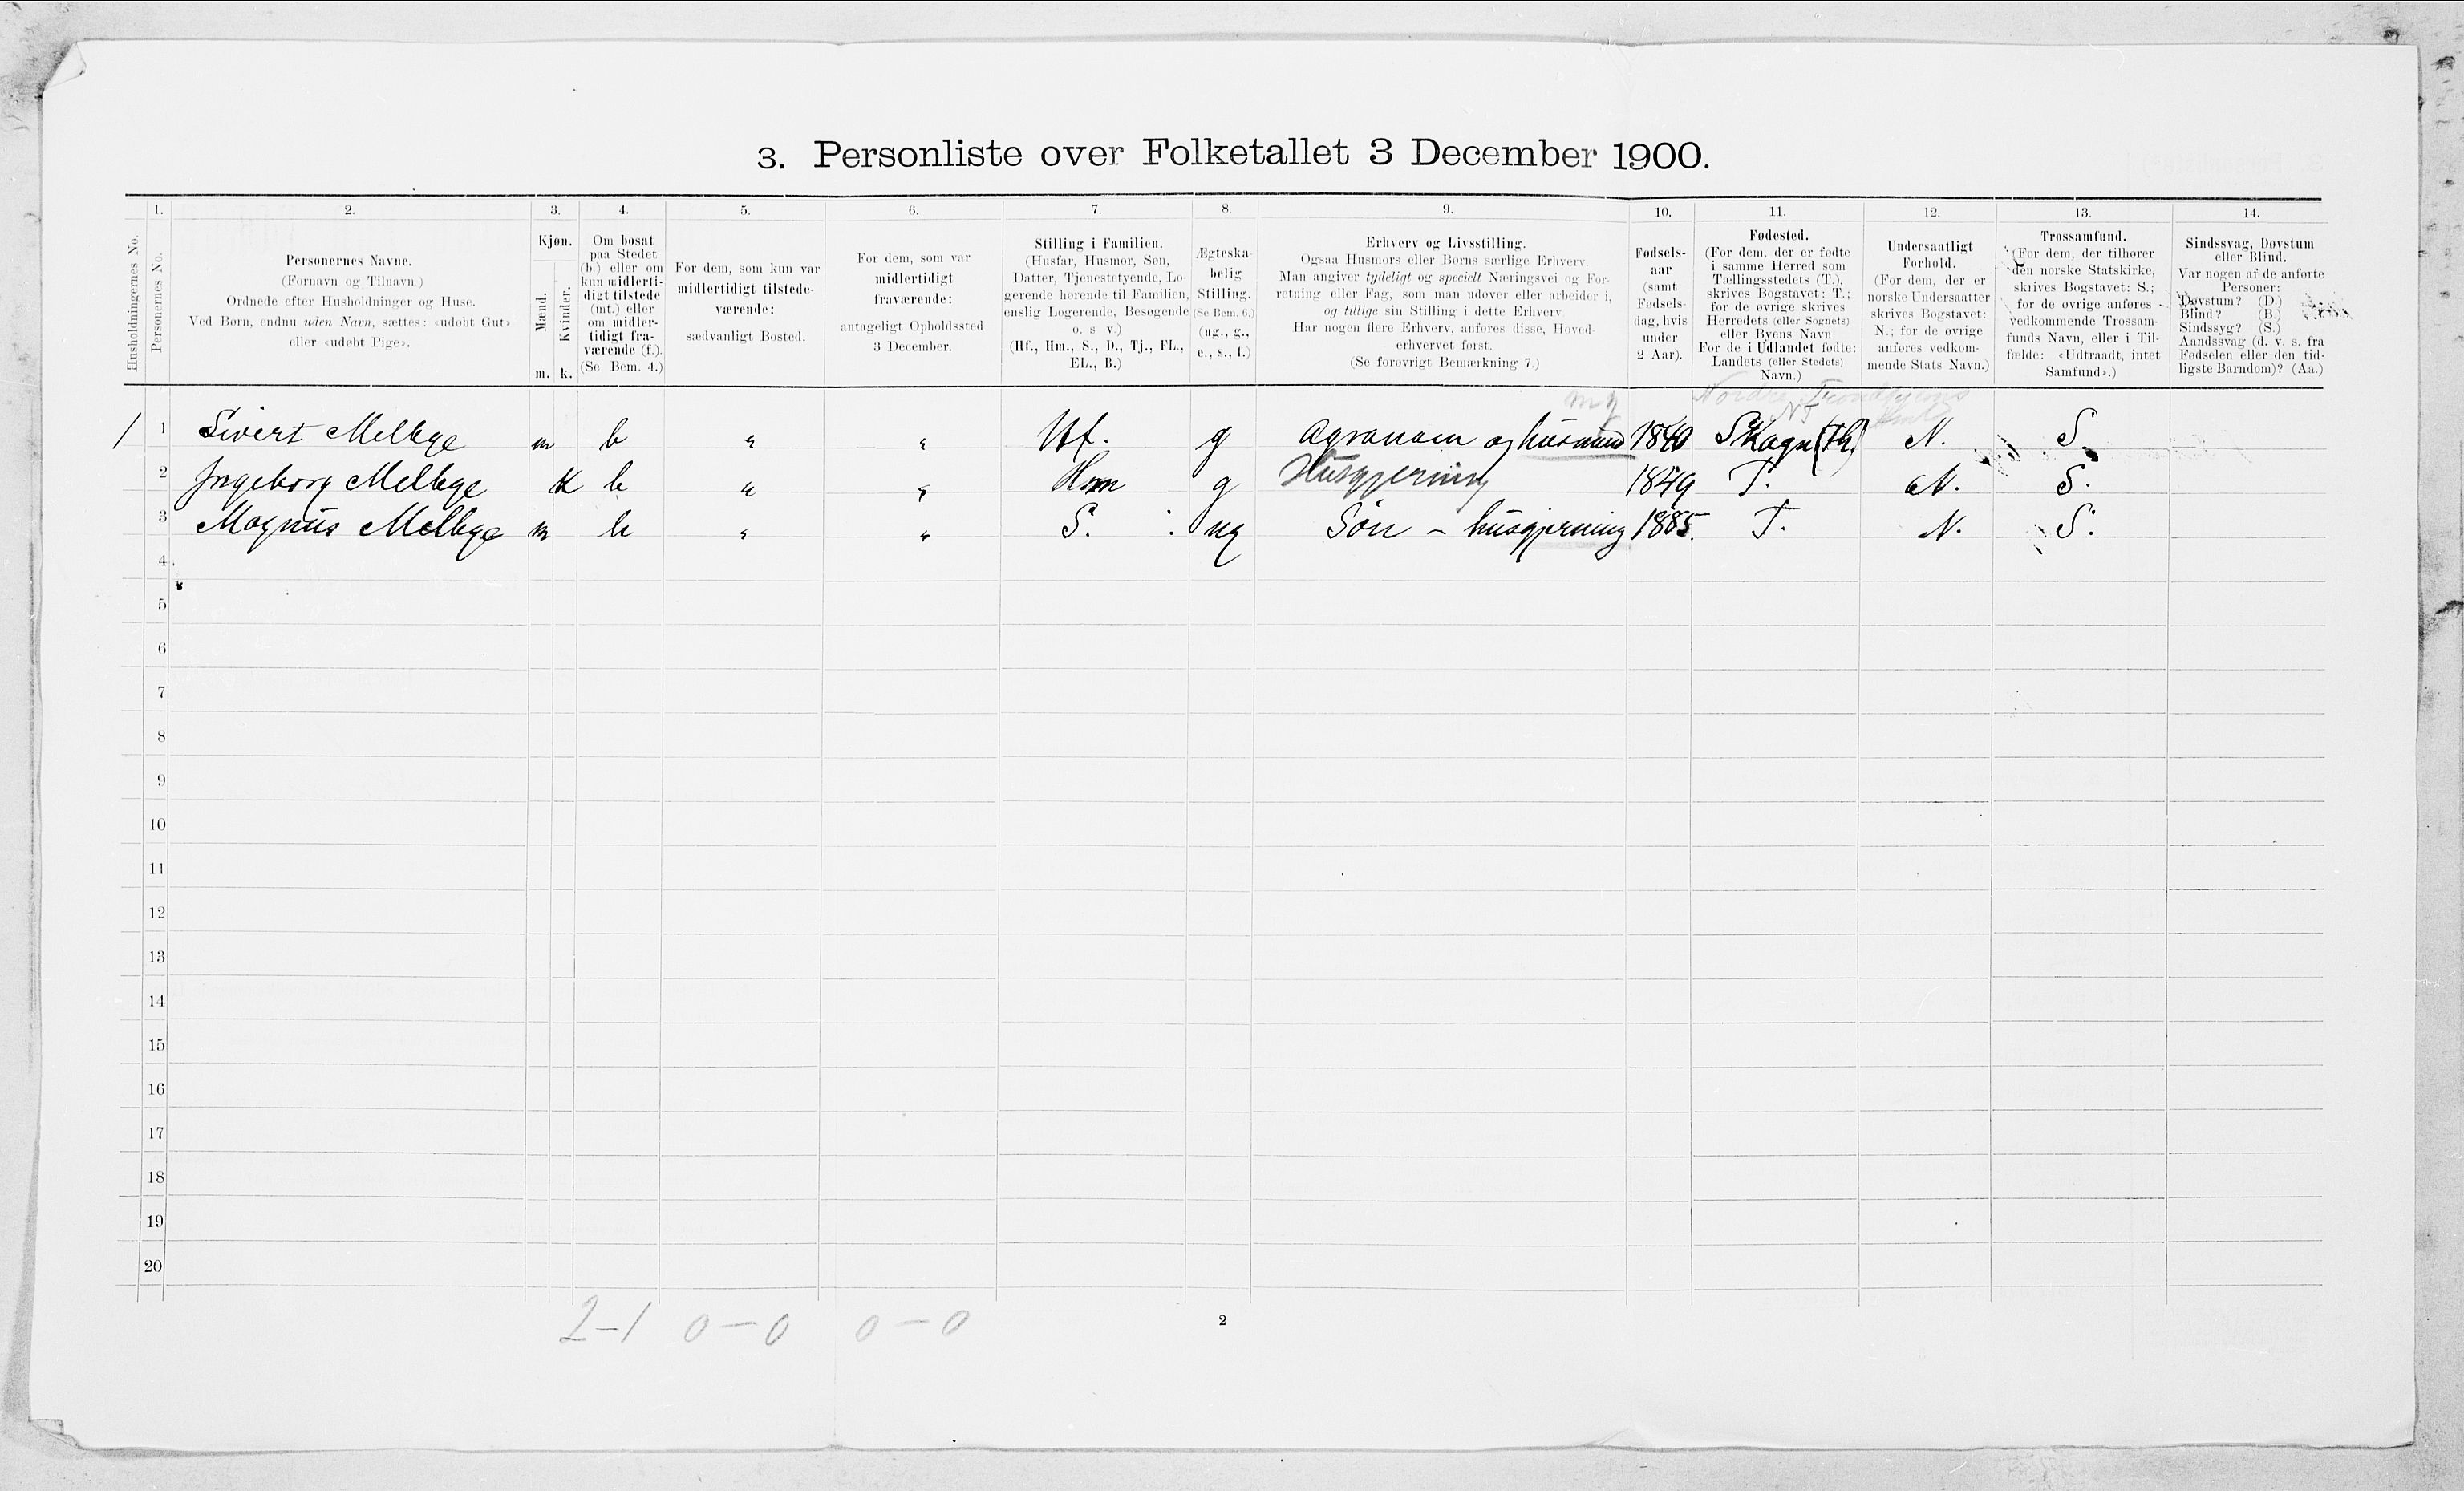 3. Personliste over Folketallet 3 December 1900.
Husholdningernes No.
1.
Personernes No.
2.
Personernes Navne.
(Fornavn og Tilnavn)
Ordnede efter Husholdninger og Huse.
Ved Børn, endnu uden Navn, sættes: «udøbt Gut»
eller «udøbt Pige».
3.
Kjøn.
Mænd.
Kvinder.
m. k.
4.
Om bosat
paa Stedet
(b.) eller om
kun midlerti-
digt tilstede
(mt.) eller
om midler-
tidigt fra-
værende (f.).
(Se Bem. 4.)
5.
For dem, som kun var
midlertidigt tilstede-
værende:
sædvanligt Bosted.
6.
For dem, som var
midlertidigt
fraværende:
antageligt Opholdssted
3 December.
7.
Stilling i Familien.
(Husfar, Husmor, Søn,
Datter, Tjenestetyende, Lo-
gerende hørende til Familien,
enslig Logerende, Besøgende
o. s v.)
(Hf., Hm., S., D., Tj., FL.,
EL., B.)
8.
Ægteska-
belig
Stilling.
(Se Bem. 6.)
(ug., g.,
e., s., f.)
9.
Erhverv og Livsstilling.
Ogsaa Husmors eller Børns særlige Erhverv.
Man angiver tydeligt og specielt Næringsvei og For-
retning eller Fag, som man udøver eller arbeider i,
og tillige sin Stilling i dette Erhverv.
Har nogen flere Erhverv, anføres disse, Hoved-
erhvervet først.
(Se forøvrigt Bemærkning 7.)
10.
Fødsels-
aar
(samt
Fødsels-
dag, hvis
under
2 Aar).
11.
Fødested.
(For dem, der er fødte
i samme Herred som
Tællingsstedets (T.),
skrives Bogstavet: T.;
for de øvrige skrives
Herredets (eller Sognets)
eller Byens Navn
For de i Udlandet fødte:
Landets (eller Stedets)
Navn.)
12.
Undersaatligt
Forhold.
(For dem, der er
norske Undersaatter
skrives Bogstavet:
N.; for de øvrige
anføres vedkom-
mende Stats Navn.)
13.
Trossamfund.
(For dem, der tilhører
den norske Statskirke,
skrives Bogstavet: S.;
for de øvrige anføres
vedkommende Trossam-
funds Navn, eller i Til-
fælde: «Udtraadt, intet
Samfund».)
14.
Sindssvag, Døvstum
eller Blind.
Var nogen af de anførte
Personer:
Døvstum? (D.)
Blind? (B.)
Sindssyg? (S.)
Aandssvag (d. v. s. fra
Fødselen eller den tid-
ligste Barndom)? (Aa.)
Nordre Trondhjems
NT Amt
1 1 Sivert Melbye m b " " Hf. g Agronom og husmand 1840 Skogn (Th) N. S.
2 Ingeborg Melbye K b " " Hm g Husgjerning 1849 T. N. S.
3 Magnus Melbye m b " " S. ug Søn - husgjerning 1885. T. N. S.
4
5
6
7
8
9
10
11
12
13
14
15
16
17
18
19
20
2-1 0-0 0-0
2